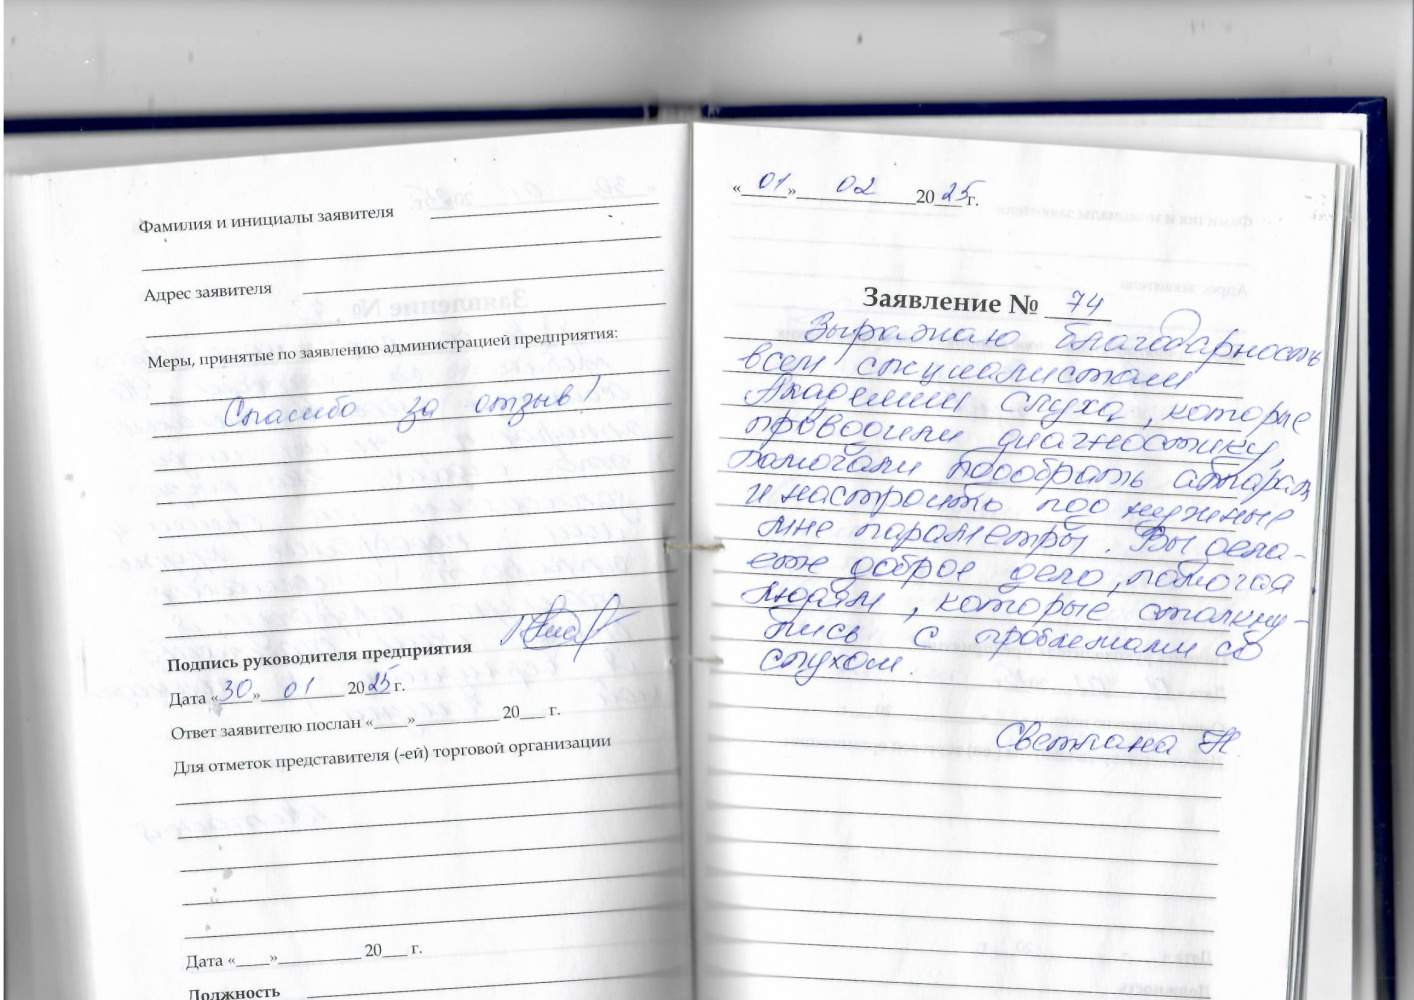 Фамилия и инициалы заявителя
Адрес заявителя
Меры, принятые по заявлению администрацией предприятия:
Спасибо за отзыв!
Подпись руководителя предприятия
Дата «30» 01 2025 г.
Ответ заявителю послан «___»__________ 20___ г.
Для отметок представителя (-ей) торговой организации
Дата «____»__________ 20___ г.
Должность
«01» 02 2025г.
Заявление № 74
Выражаю благодарность
всем специалистам
Академии слуха, которые
проводили диагностику,
помогали подобрать аппарат
и настроить под нужные
мне параметры. Вы дела-
ете доброе дело, помогая
людям, которые столкну-
лись с проблемами со
слухом.
Светлана Н.